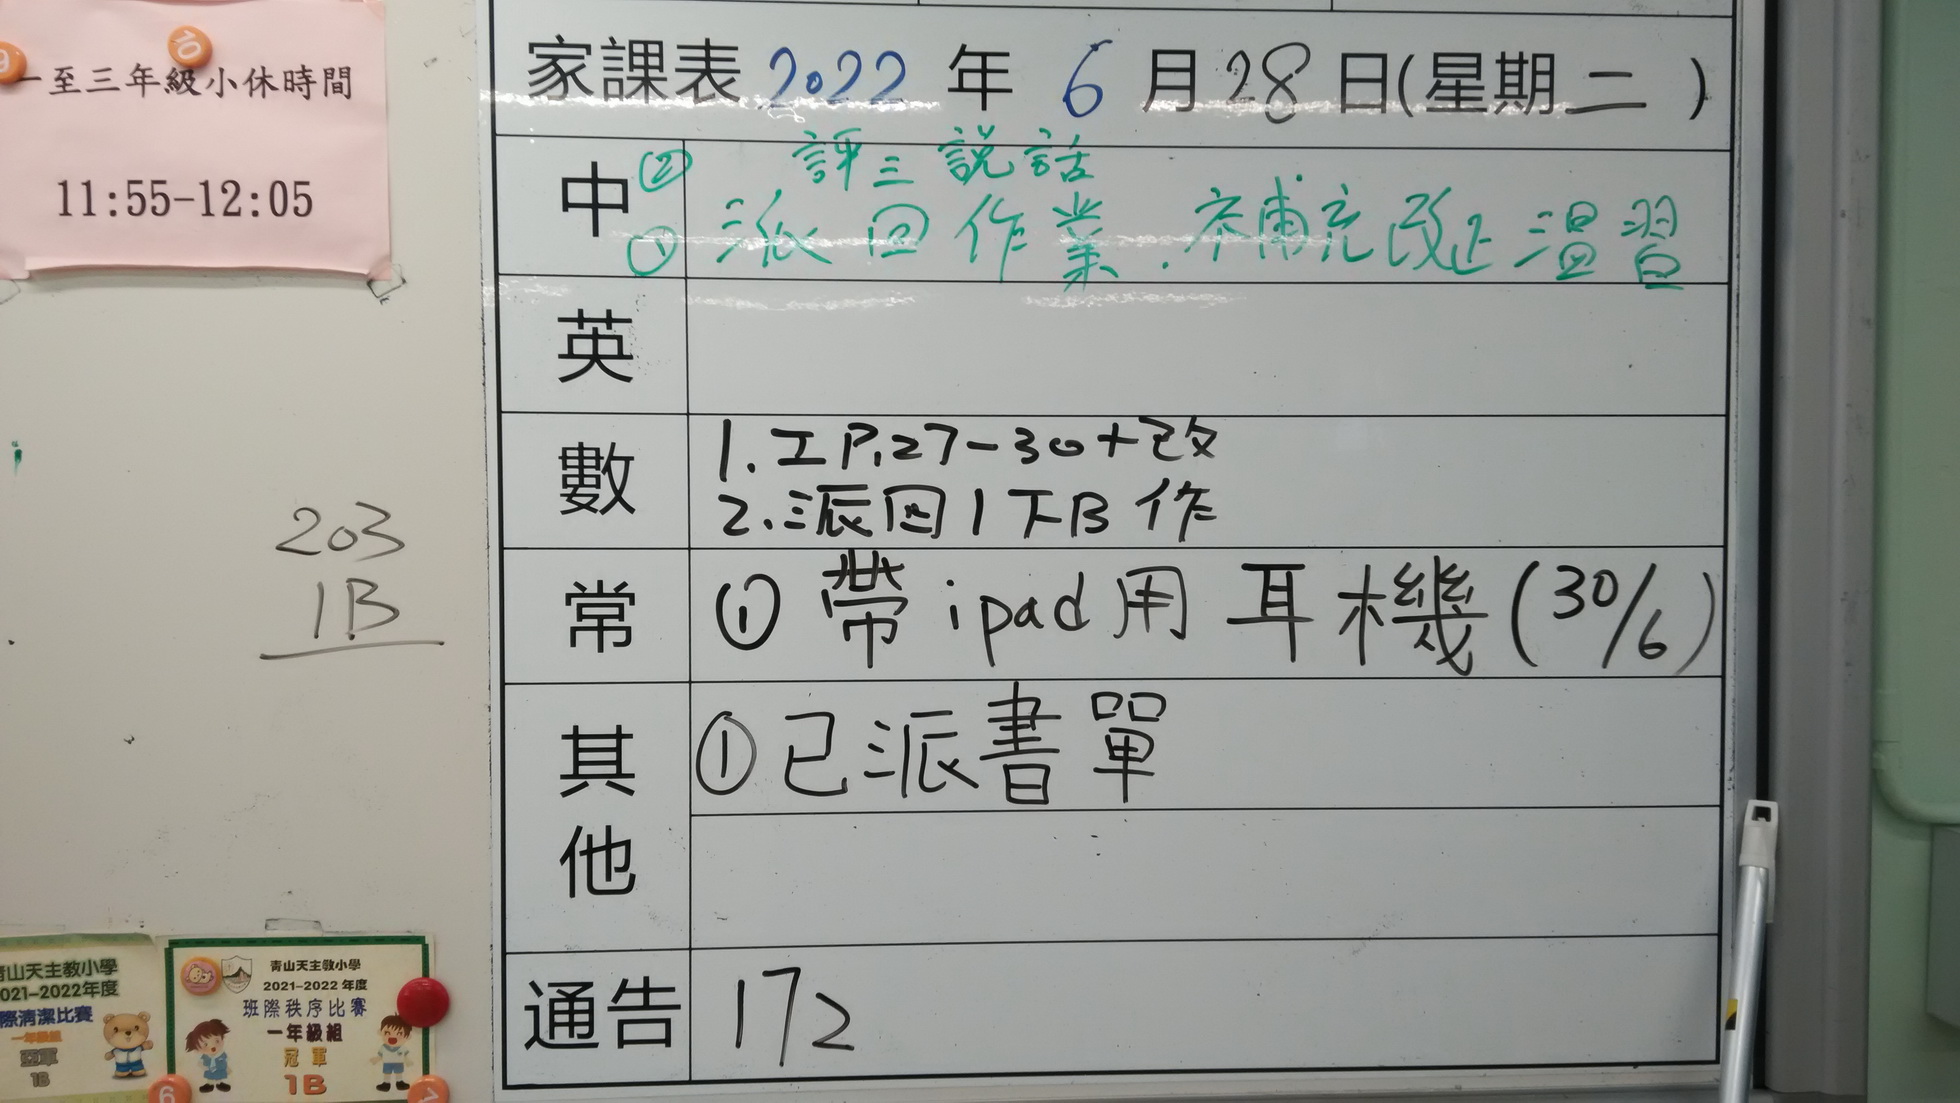 10
9
一至三年級小休時間
11:55-12:05
家課表 2022 年 6 月 28 日(星期二)
中 ② 評三說話
① 派回作業.補充改正溫習
英
數 1. 工P.27-30+改
2. 派回1下B作
常 ① 帶ipad用耳機(30/6)
其他 ① 已派書單
通告 172
203
1B
青山天主教小學
2021-2022年度
際清潔比賽
一年級組
亞軍
1B
青山天主教小學
2021-2022 年度
班際秩序比賽
一年級組
冠軍
1B